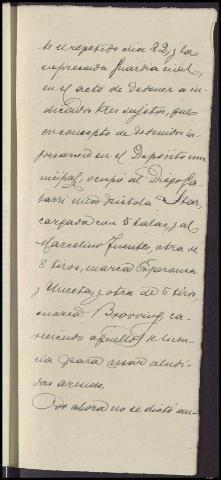 te el repetido dia 22, y la
expresada Guardia civil,
en el acto de detener a in-
dicados tres sujetos, que
en concepto de detenidos in-
gresaron en el Depósito mu-
nicipal, ocupó al Diego Ga-
barri una pistola Star,
cargada con 5 balas, y al
Marcelino Fuente, otra de
8 tiros, marca Esperanza
y Unceta, y otra de 6 tiros,
marca Browning, ca-
reciendo aquellos de licen-
cia para usar aludi-
das armas.
Por ahora no se dictó au-